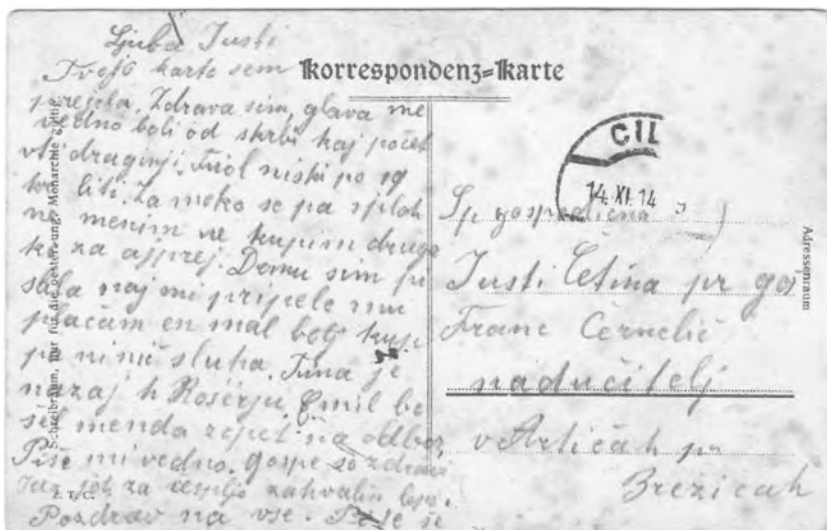 Ljuba Justi
Tvojo karto sem
prejela. Zdrava sim, glava me
vedno boli od skrbi kaj počet
v ti draginji. Fižol niski po 19
kr. liti. Za moko se pa sploh
ne menim ne kupim druge
ko za ajprej. Domu sim pi
sala naj mi pripele mu
plačam en mal bolj kuje
pa ni nič sluha. Tina je
nazaj h Roserju. Emil be
sel menda zopet na odbor,
Piše mi vedno. gospe so zdravi
Jaz za zahvalim lepo.
Pozdrav na vse.
Korrespondenz-Karte
Schreibraum, nur für die oesterr.-ung. Monarchie giltig.
CIL
14.XI.14
Sp. gospodična
Justi Cetina pr gos
Franc Černelič
nadučitelj
v Artičah pr
Brezicah
Adressenraum